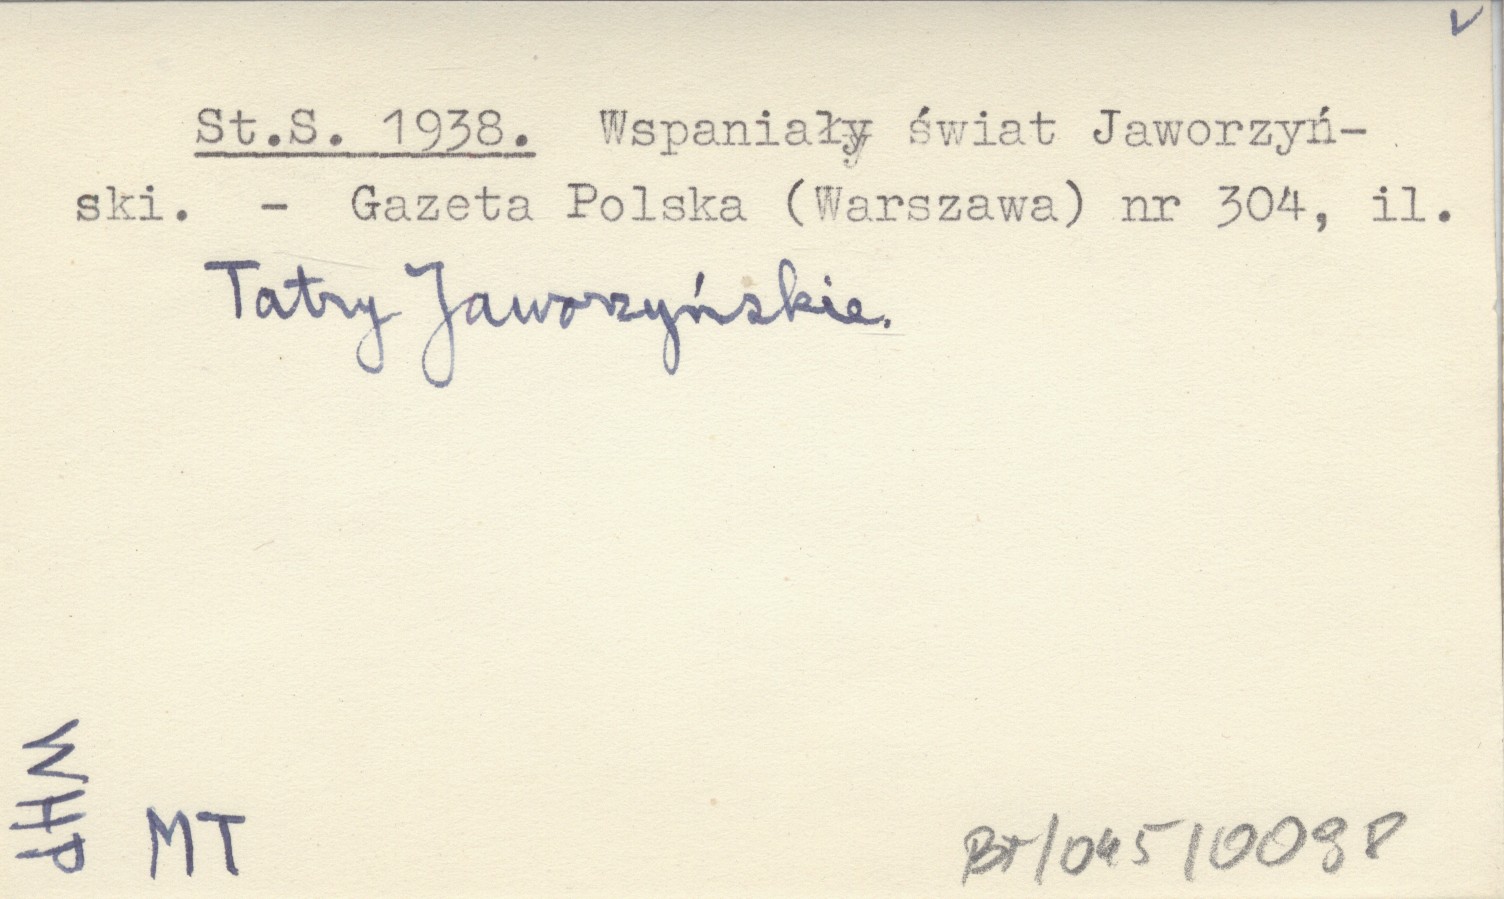 St.S. 1938. Wspaniały świat Jaworzyń-
ski. - Gazeta Polska (Warszawa) nr 304, il.
Tatry Jaworzyńskie.
WHP
MT